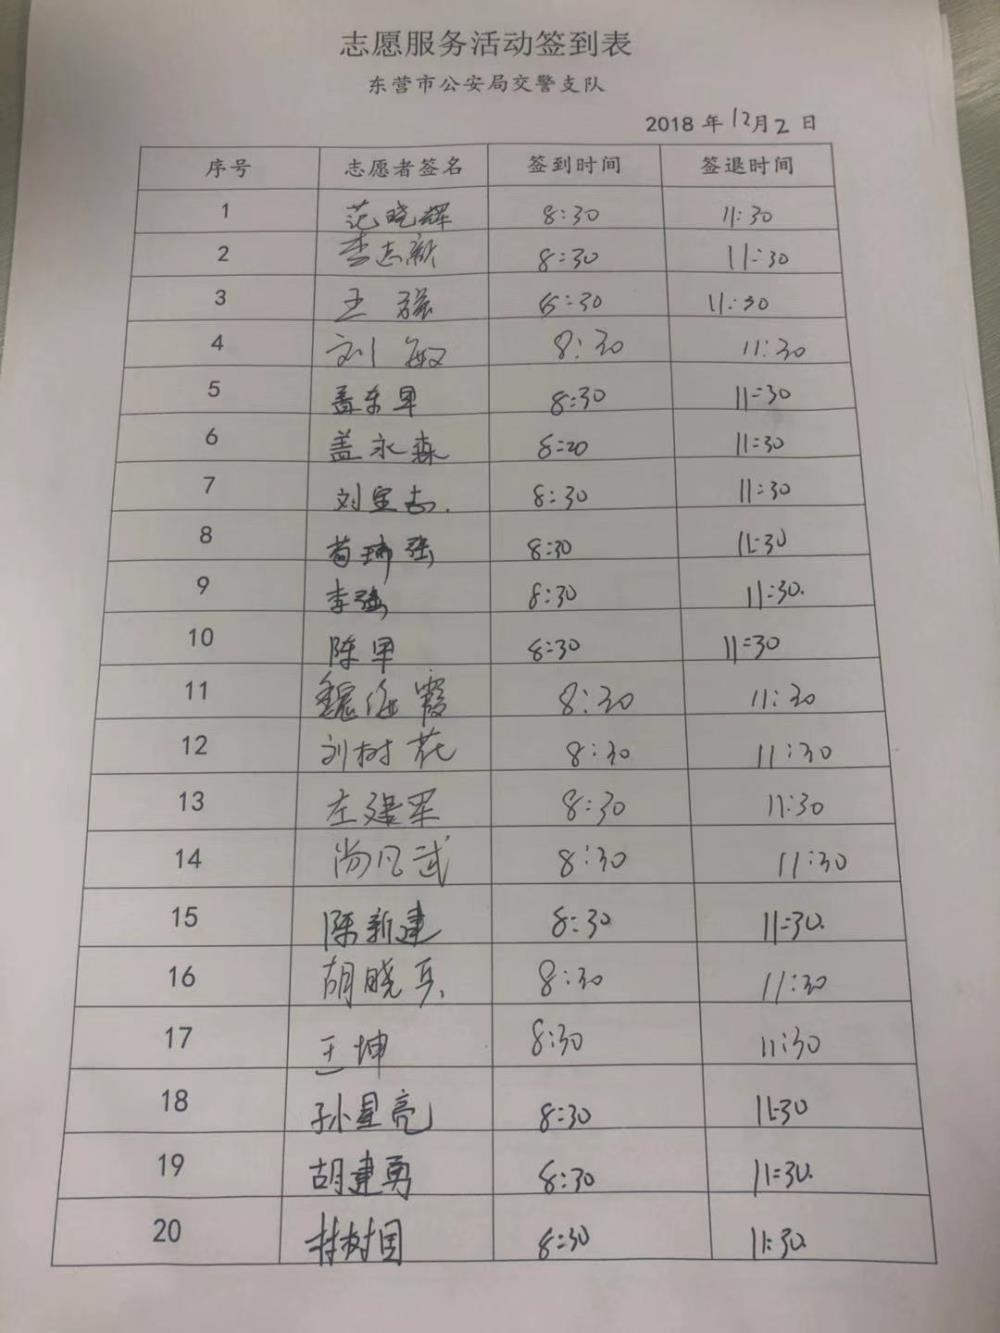 志愿服务活动签到表
东营市公安局交警支队
2018 年 12月2 日
序号 志愿者签名 签到时间 签退时间
1 范晓辉 8:30 11:30
2 李志新 8:30 11:30
3 王强 8:30 11:30
4 刘敏 8:30 11:30
5 盖东 8:30 11:30
6 盖永森 8:20 11:30
7 刘宝志. 8:30 11:30
8 苟瑞强 8:30 11:30
9 李强 8:30 11:30.
10 陈军 8:30 11:30
11 魏海霞 8:30 11:30
12 刘树花 8:30 11:30
13 左建军 8:30 11:30
14 尚凡武 8:30 11:30
15 陈新建 8:30 11:30.
16 胡晓兵 8:30 11:30
17 王坤 8:30 11:30
18 孙星亮 8:30 11:30
19 胡建勇 8:30 11:30.
20 树国 8:30 11:30.